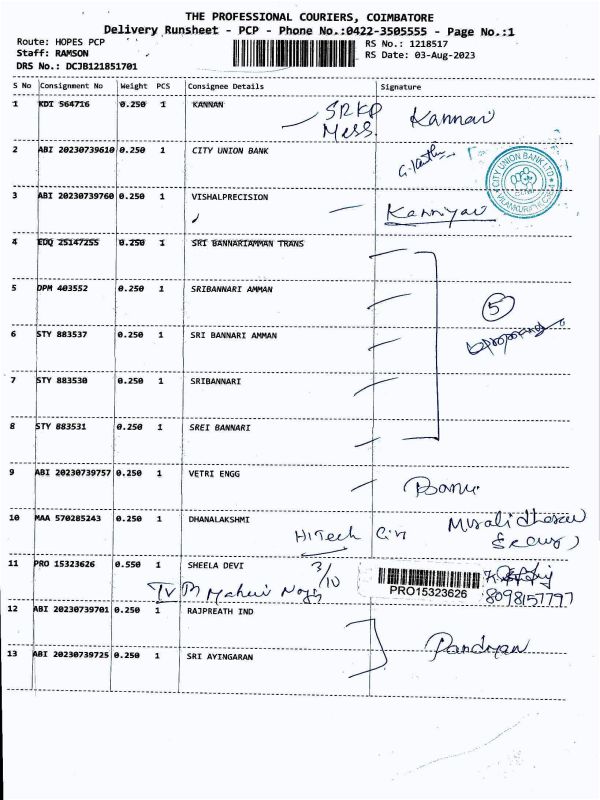 THE PROFESSIONAL COURIERS, COIMBATORE
Delivery Runsheet - PCP - Phone No.:0422-3505555 - Page No.:1
Route: HOPES PCP RS No.: 1218517
Staff: RAMSON RS Date: 03-Aug-2023
DRS No.: DCJB121851701
S No Consignment No Weight PCS Consignee Details Signature
1 KDI 564716 0.250 1 KANNAN SRKP Kannan
Mess
2 ABI 20230739610 0.250 1 CITY UNION BANK
CITY UNION BANK LTD
3 ABI 20230739760 0.250 1 VISHALPRECISION
4 EDQ 25147255 0.250 1 SRI BANNARIAMMAN TRANS
5 DPM 403552 0.250 1 SRIBANNARI AMMAN 5
6 STY 883537 0.250 1 SRI BANNARI AMMAN
7 STY 883530 0.250 1 SRIBANNARI
8 STY 883531 0.250 1 SREI BANNARI
9 ABI 20230739757 0.250 1 VETRI ENGG Banu
10 MAA 570285243 0.250 1 DHANALAKSHMI
HiTech
11 PRO 15323626 0.550 1 SHEELA DEVI 3/10
PRO15323626 8098157797
12 ABI 20230739701 0.250 1 RAJPREATH IND
13 ABI 20230739725 0.250 1 SRI AYINGARAN Pandiyan